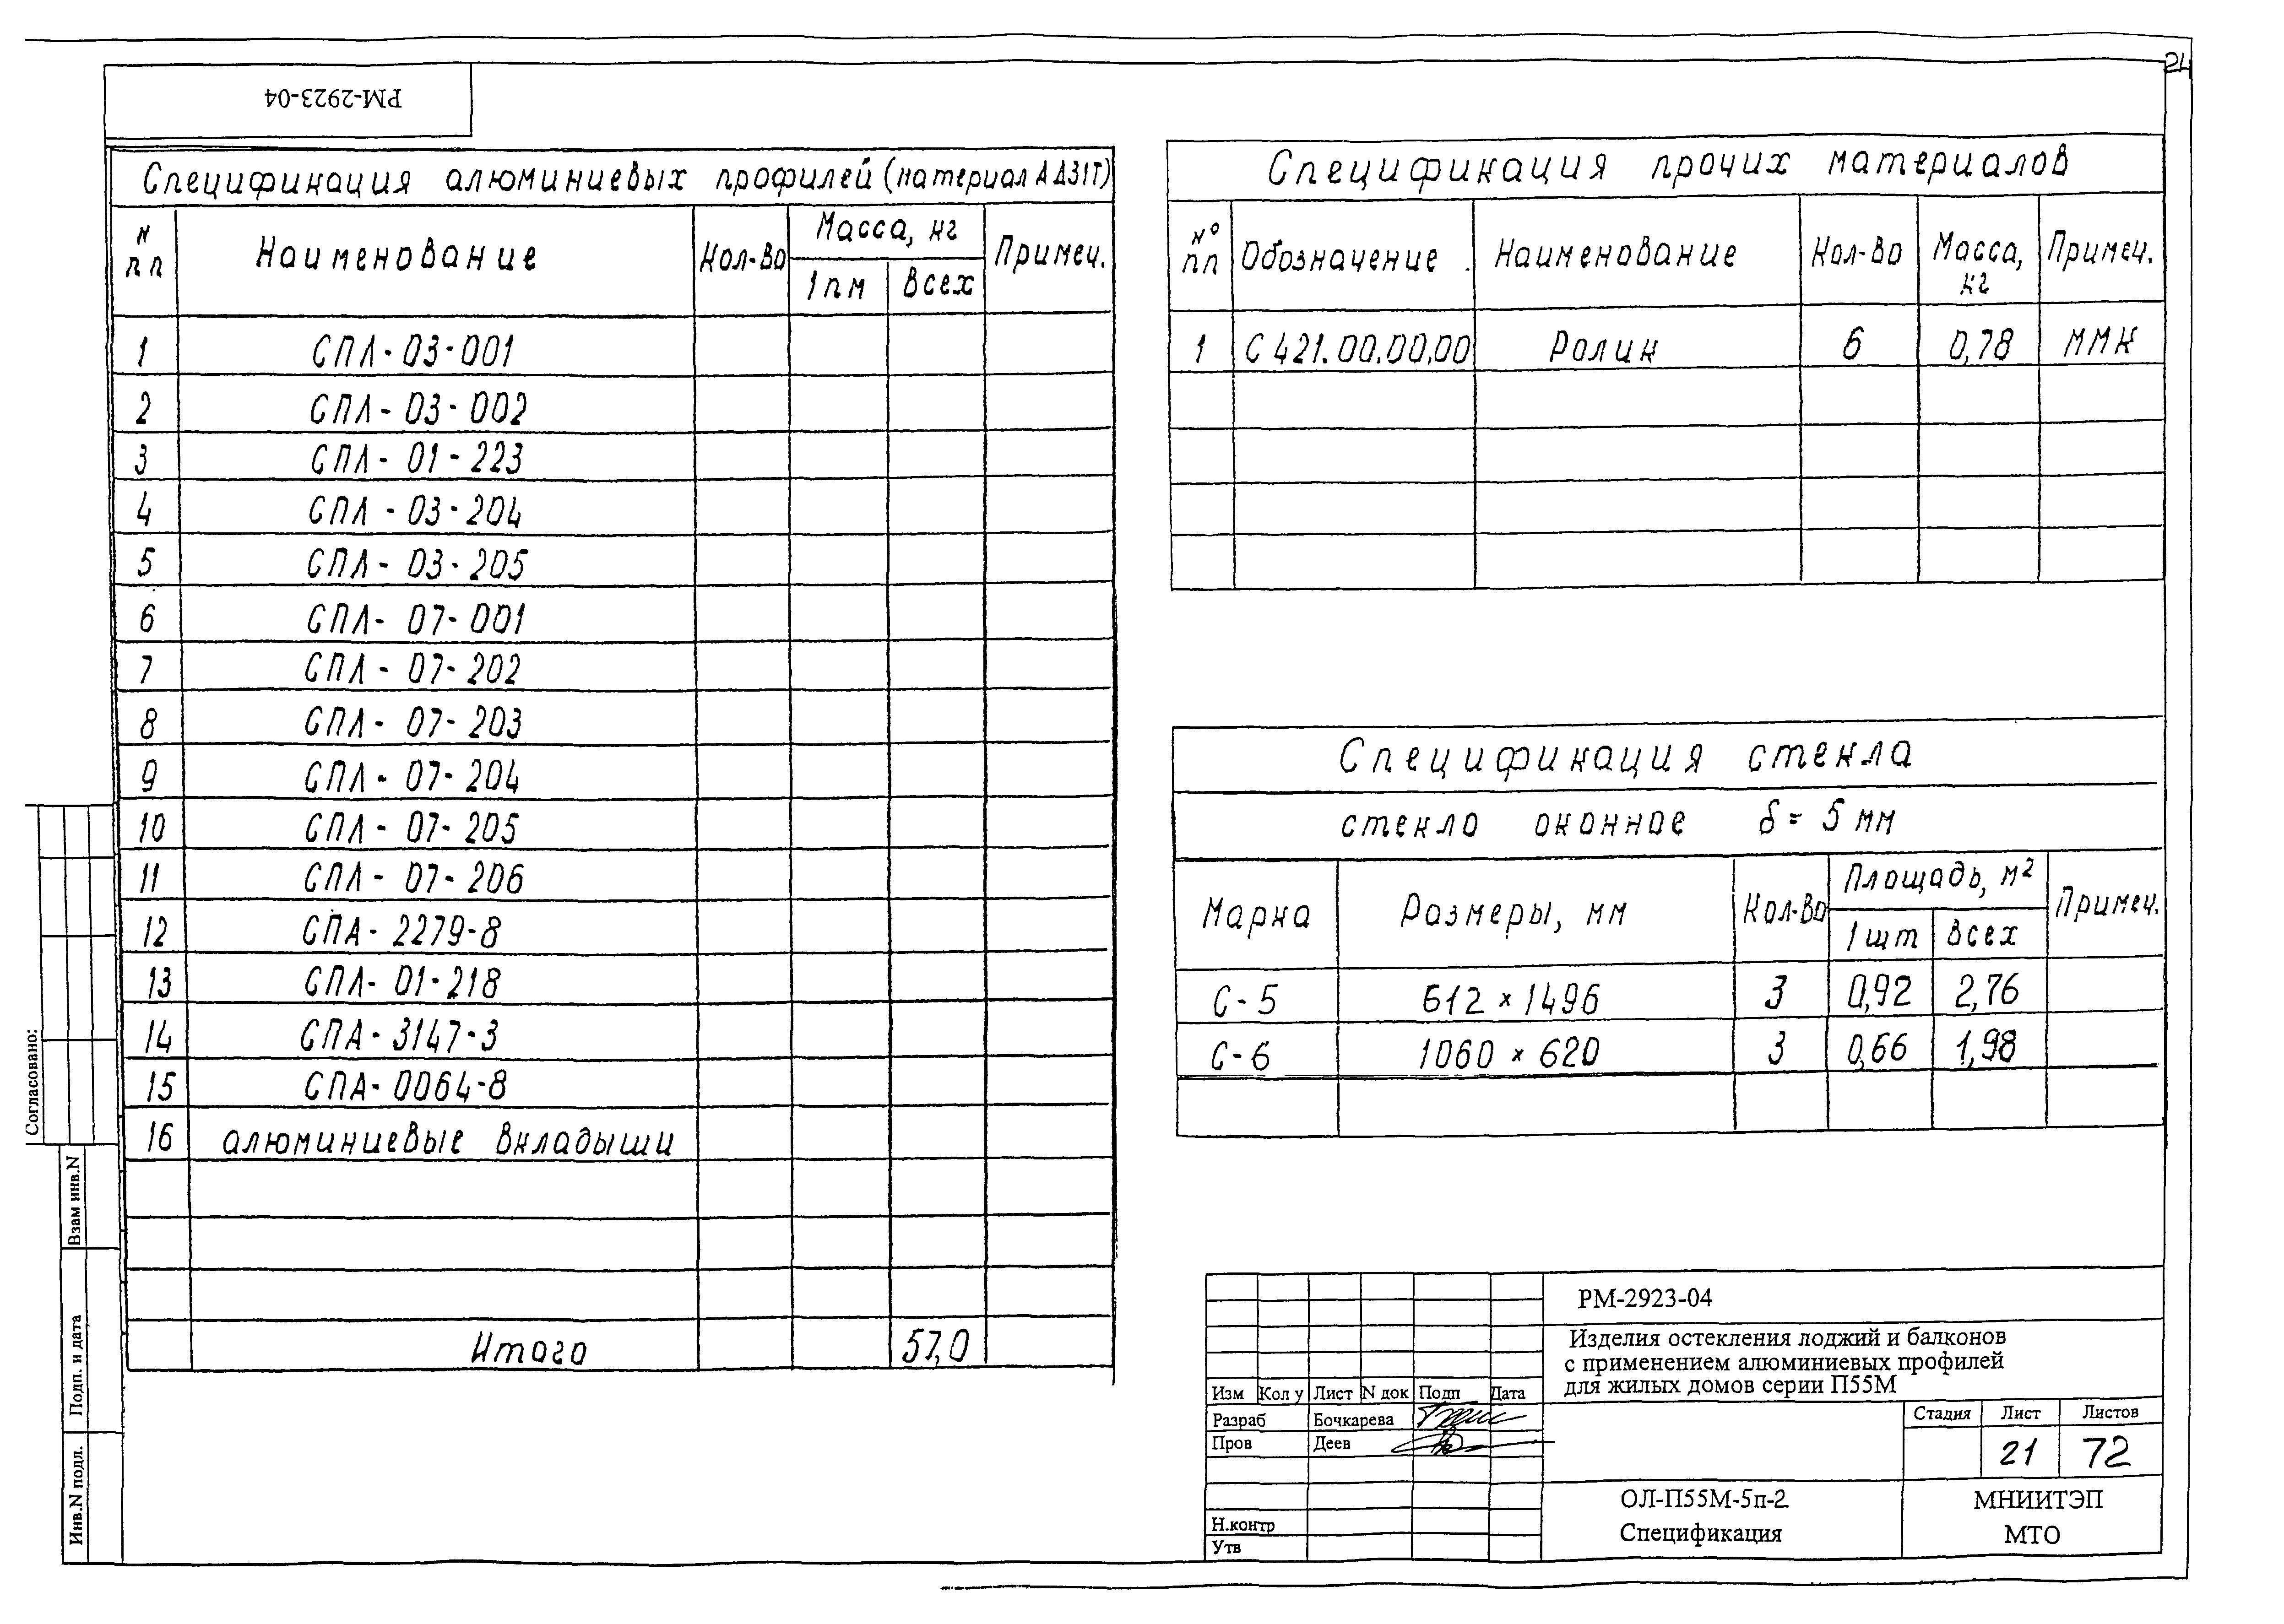 24
РМ-2923-04
Спецификация алюминиевых профилей (материал АД31Т)
N пп Наименование Кол-во Масса, кг Примеч.
1 пм Всех
1 СПЛ-03-001
2 СПЛ-03-002
3 СПЛ-01-223
4 СПЛ-03-204
5 СПЛ-03-205
6 СПЛ-07-001
7 СПЛ-07-202
8 СПЛ-07-203
9 СПЛ-07-204
10 СПЛ-07-205
11 СПЛ-07-206
12 СПА-2279-8
13 СПЛ-01-218
14 СПА-3147-3
15 СПА-0064-8
16 алюминиевые вкладыши
Итого 57,0
Спецификация прочих материалов
N° пп Обозначение Наименование Кол-во Масса, кг Примеч.
1 С 421.00.00.00 Ролик 6 0,78 ММК
Спецификация стекла
стекло оконное δ = 5 мм
Марка Размеры, мм Кол-во Площадь, м² Примеч.
1 шт Всех
С-5 612 × 1496 3 0,92 2,76
С-6 1060 × 620 3 0,66 1,98
Согласовано:
Взам инв.N
Подп. и дата
Инв.N подл.
РМ-2923-04
Изделия остекления лоджий и балконов
с применением алюминиевых профилей
для жилых домов серии П55М
Изм Кол у Лист N док Подп Дата
Разраб Бочкарева
Пров Деев
Н.контр
Утв
Стадия Лист Листов
21 72
ОЛ-П55М-5п-2
Спецификация
МНИИТЭП
МТО